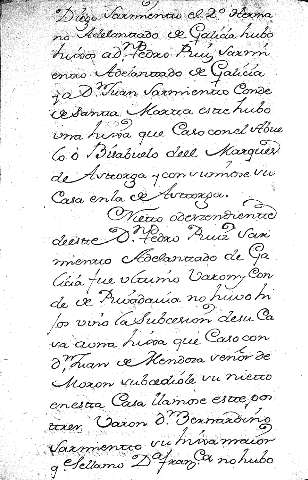 Diego Sarmiento el 2º Herma
no Adelantado de Galicia hubo
hijos a Dn. Pedro Ruiz Sarmi
ento Adelantado de Galicia
y a Dn. Juan Sarmiento Conde
de Santa Marta este hubo
una hija que Caso con el Abue
lo ó Bisabuelo deel Marques
de Astorga y con su
Casa en la de Astorga.
Nieto ò deszendiente
de este Dn. Pedro Ruiz Sar
miento Adelantado de Ga
licia fue ultimo Varon y Con
de de Rivadavia no huvo hi
jos vino la Subcesion de su Ca
sa a una hija que Caso con
dn. Juan de Mendoza señor de
Moron subcediole su nieto
en esta Casa llamose este, pos
trer Varon dn. Bernardino
Sarmiento su hija maior
qe. Se llamo Da. Franca. no hubo